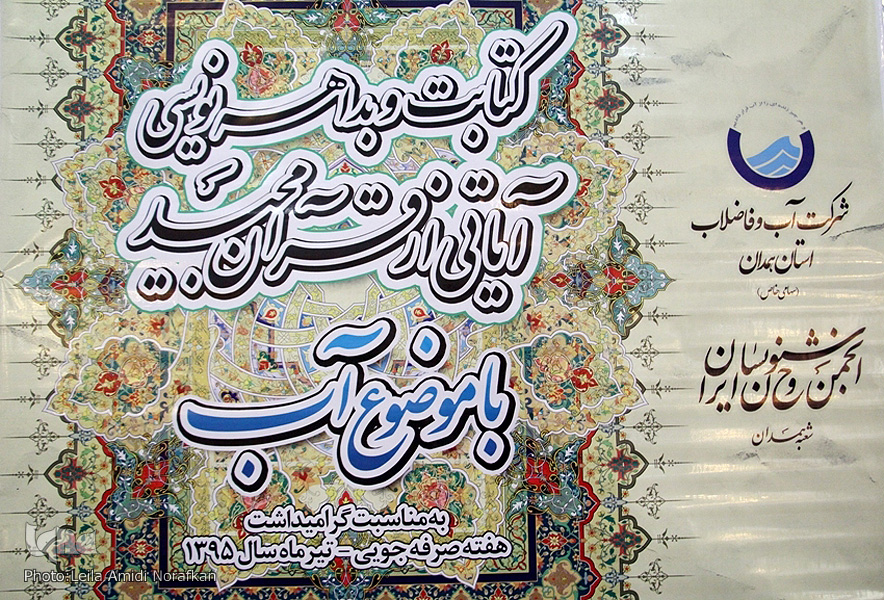 کتابت و بداهه نویسی
آیاتی از قرآن مجید
با موضوع آب
به مناسبت گرامیداشت
هفته صرفه جویی - تیر ماه سال ۱۳۹۵
شرکت آب و فاضلاب
استان همدان
(سهامی خاص)
انجمن خوشنویسان ایران
شعبه همدان
Photo:Leila Amidi Norafkan